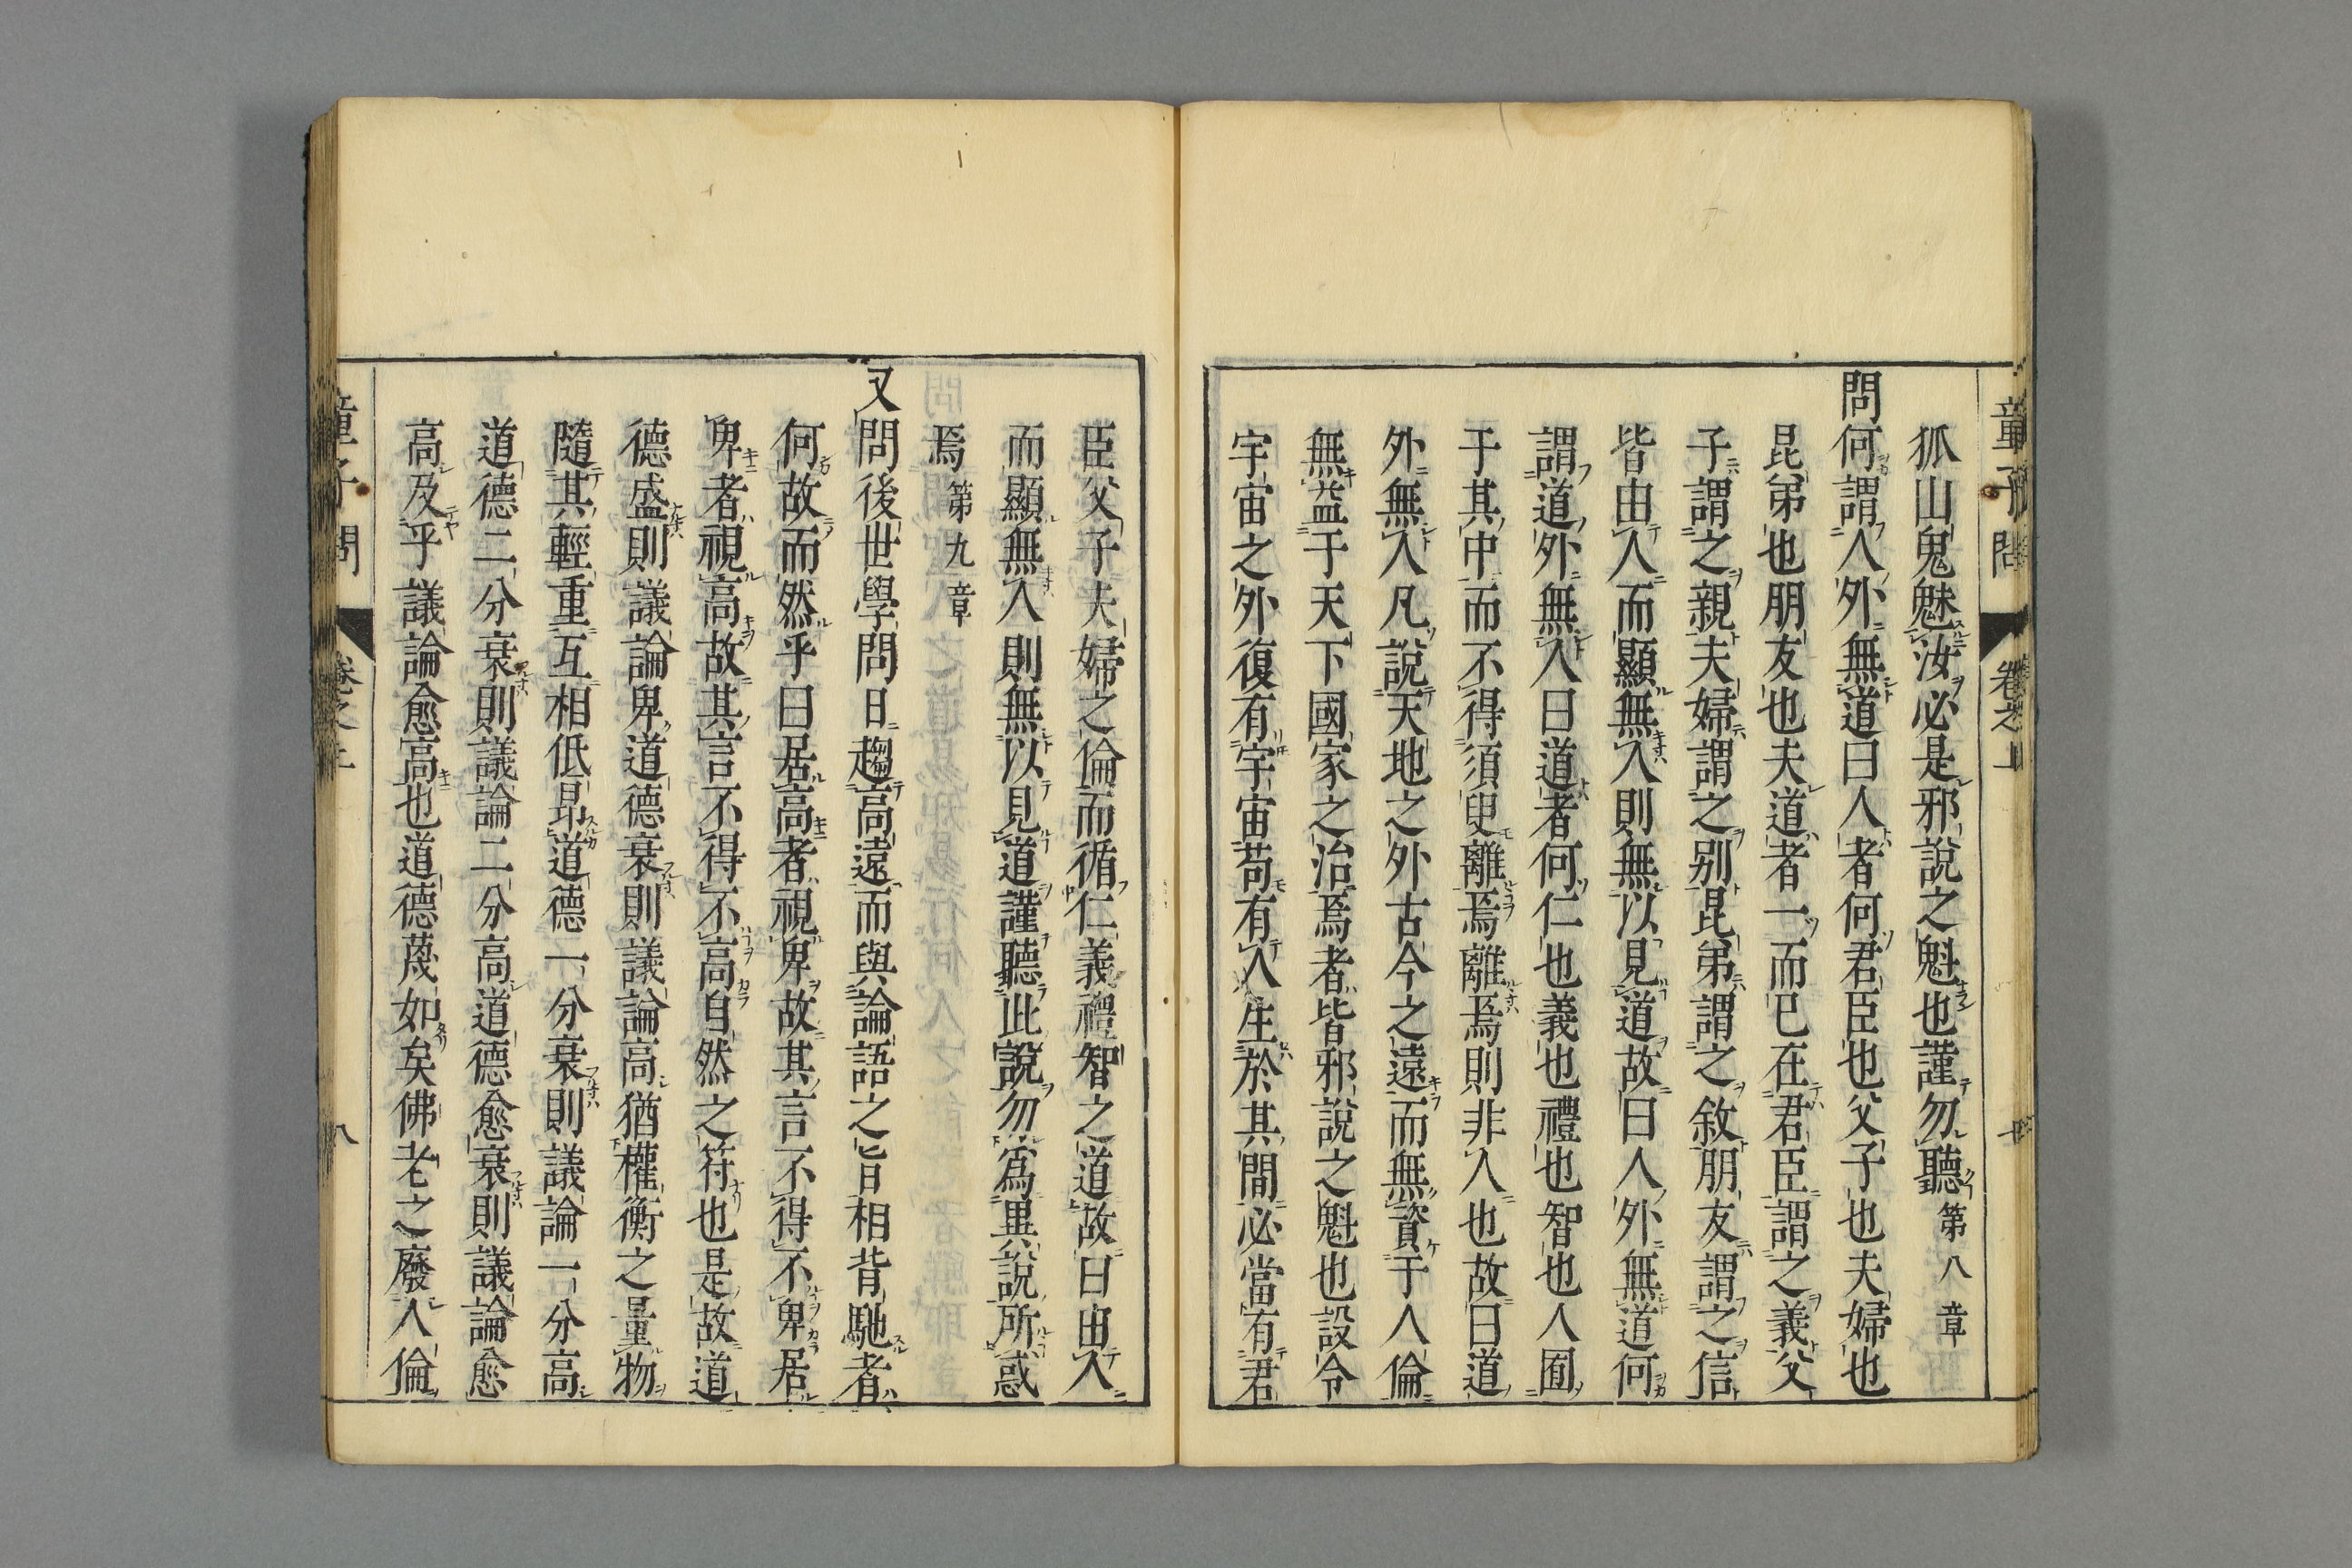 童子問 卷之上
狐山鬼魅汝必是邪說之魁也謹勿聽 第八章
問何謂人外無道曰人者何君臣也父子也夫婦也
昆弟也朋友也夫道者一而已在君臣謂之義父
子謂之親夫婦謂之别昆弟謂之敘朋友謂之信
皆由人而顯無人則無以見道故曰人外無道何
謂道外無人曰道者何仁也義也禮也智也人囿
于其中而不得須臾離焉離焉則非人也故曰道
外無人凡說天地之外古今之遠而無資于人倫
無益于天下國家之治焉者皆邪說之魁也設令
宇宙之外復有宇宙苟有人生於其間必當有君
臣父子夫婦之倫而循仁義禮智之道故曰由人
而顯無人則無以見道謹聽此說勿爲異說所惑
焉 第九章
又問後世學問日趨高遠而與論語之旨相背馳者
何故而然乎曰居高者視卑故其言不得不卑居
卑者視高故其言不得不高自然之符也是故道
德盛則議論卑道德衰則議論高猶權衡之量物
隨其輕重互相低昻道德一分衰則議論一分高
道德二分衰則議論二分高道德愈衰則議論愈
高及乎議論愈高也道德蔑如矣佛老之廢人倫
童子問 卷之上 八